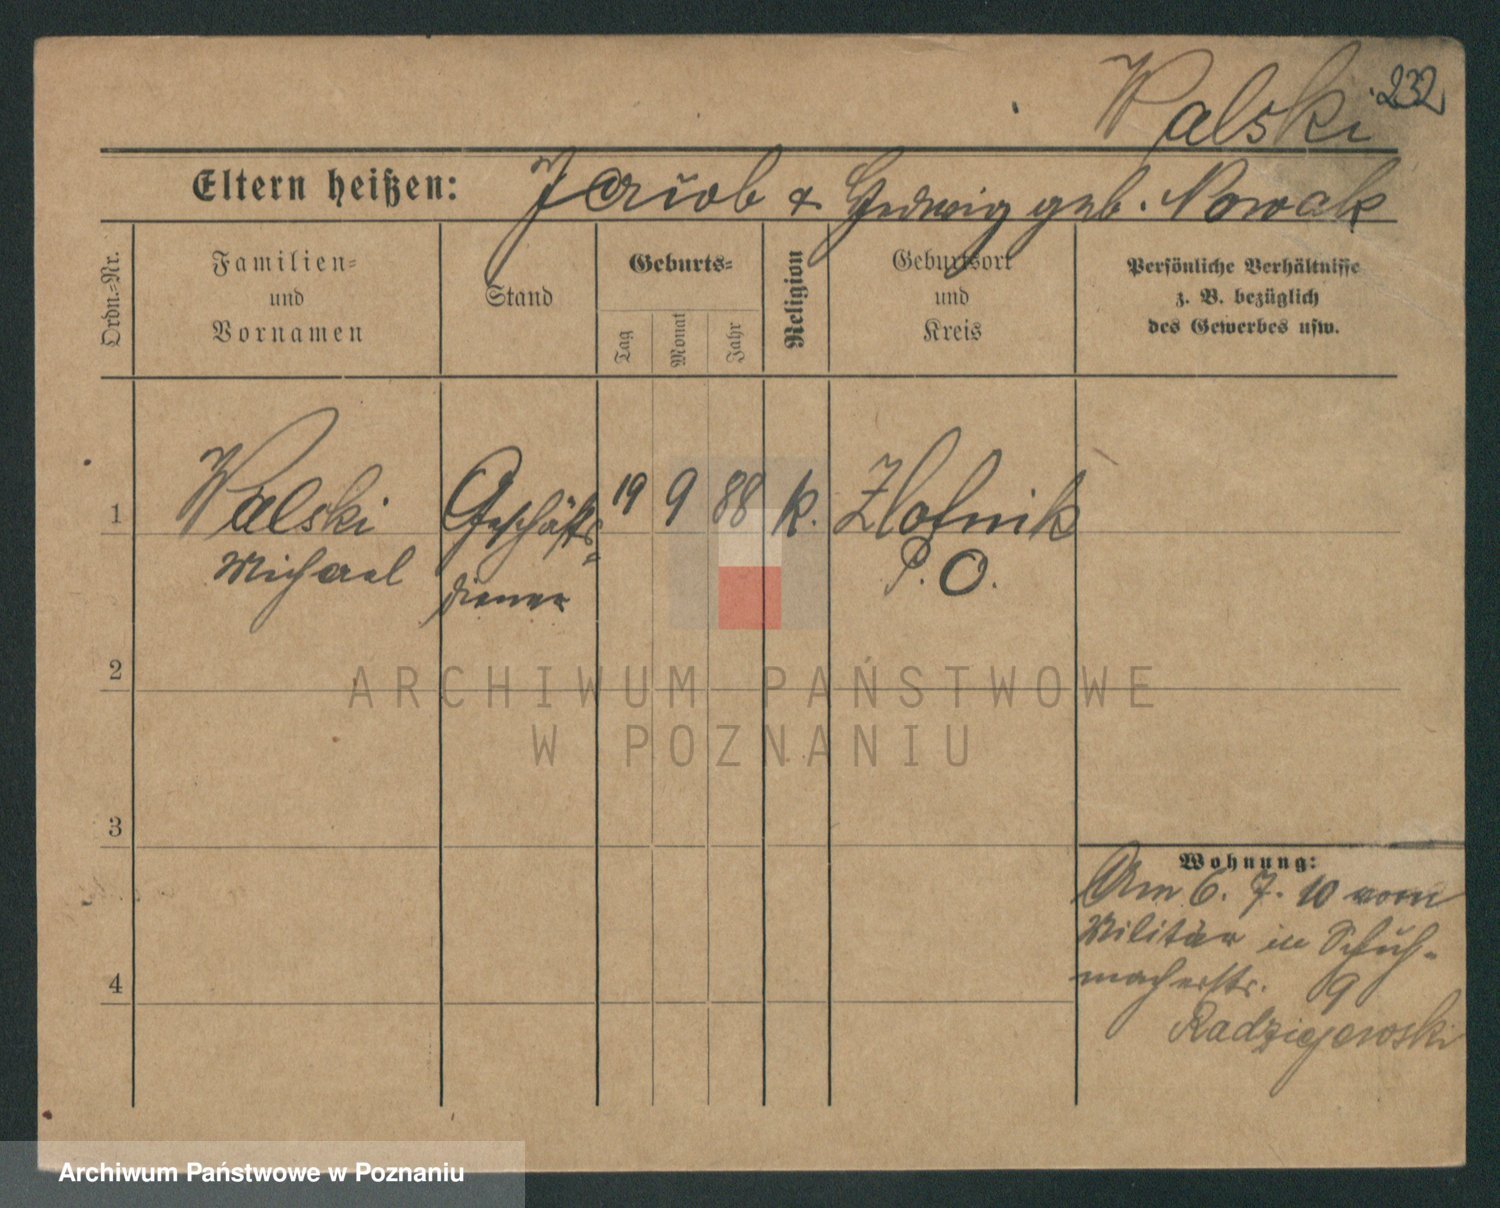 232
Walski
Eltern heißen: Jakob & Hedwig geb. Nowak
Ordn.=Nr.
Familien=
und
Vornamen
Stand
Geburts=
Tag
Monat
Jahr
Religion
Geburtsort
und
Kreis
Persönliche Verhältnisse
z. B. bezüglich
des Gewerbes usw.
1 Walski Geschäfts= 19 9 88 k. Zlotnik
Michael diener P. O.
2
3
4
Wohnung:
Am 6. 7. 10 vom
Militär in Schuh-
macherstr. 9
Radziejewski
ARCHIWUM PAŃSTWOWE
W POZNANIU
Archiwum Państwowe w Poznaniu